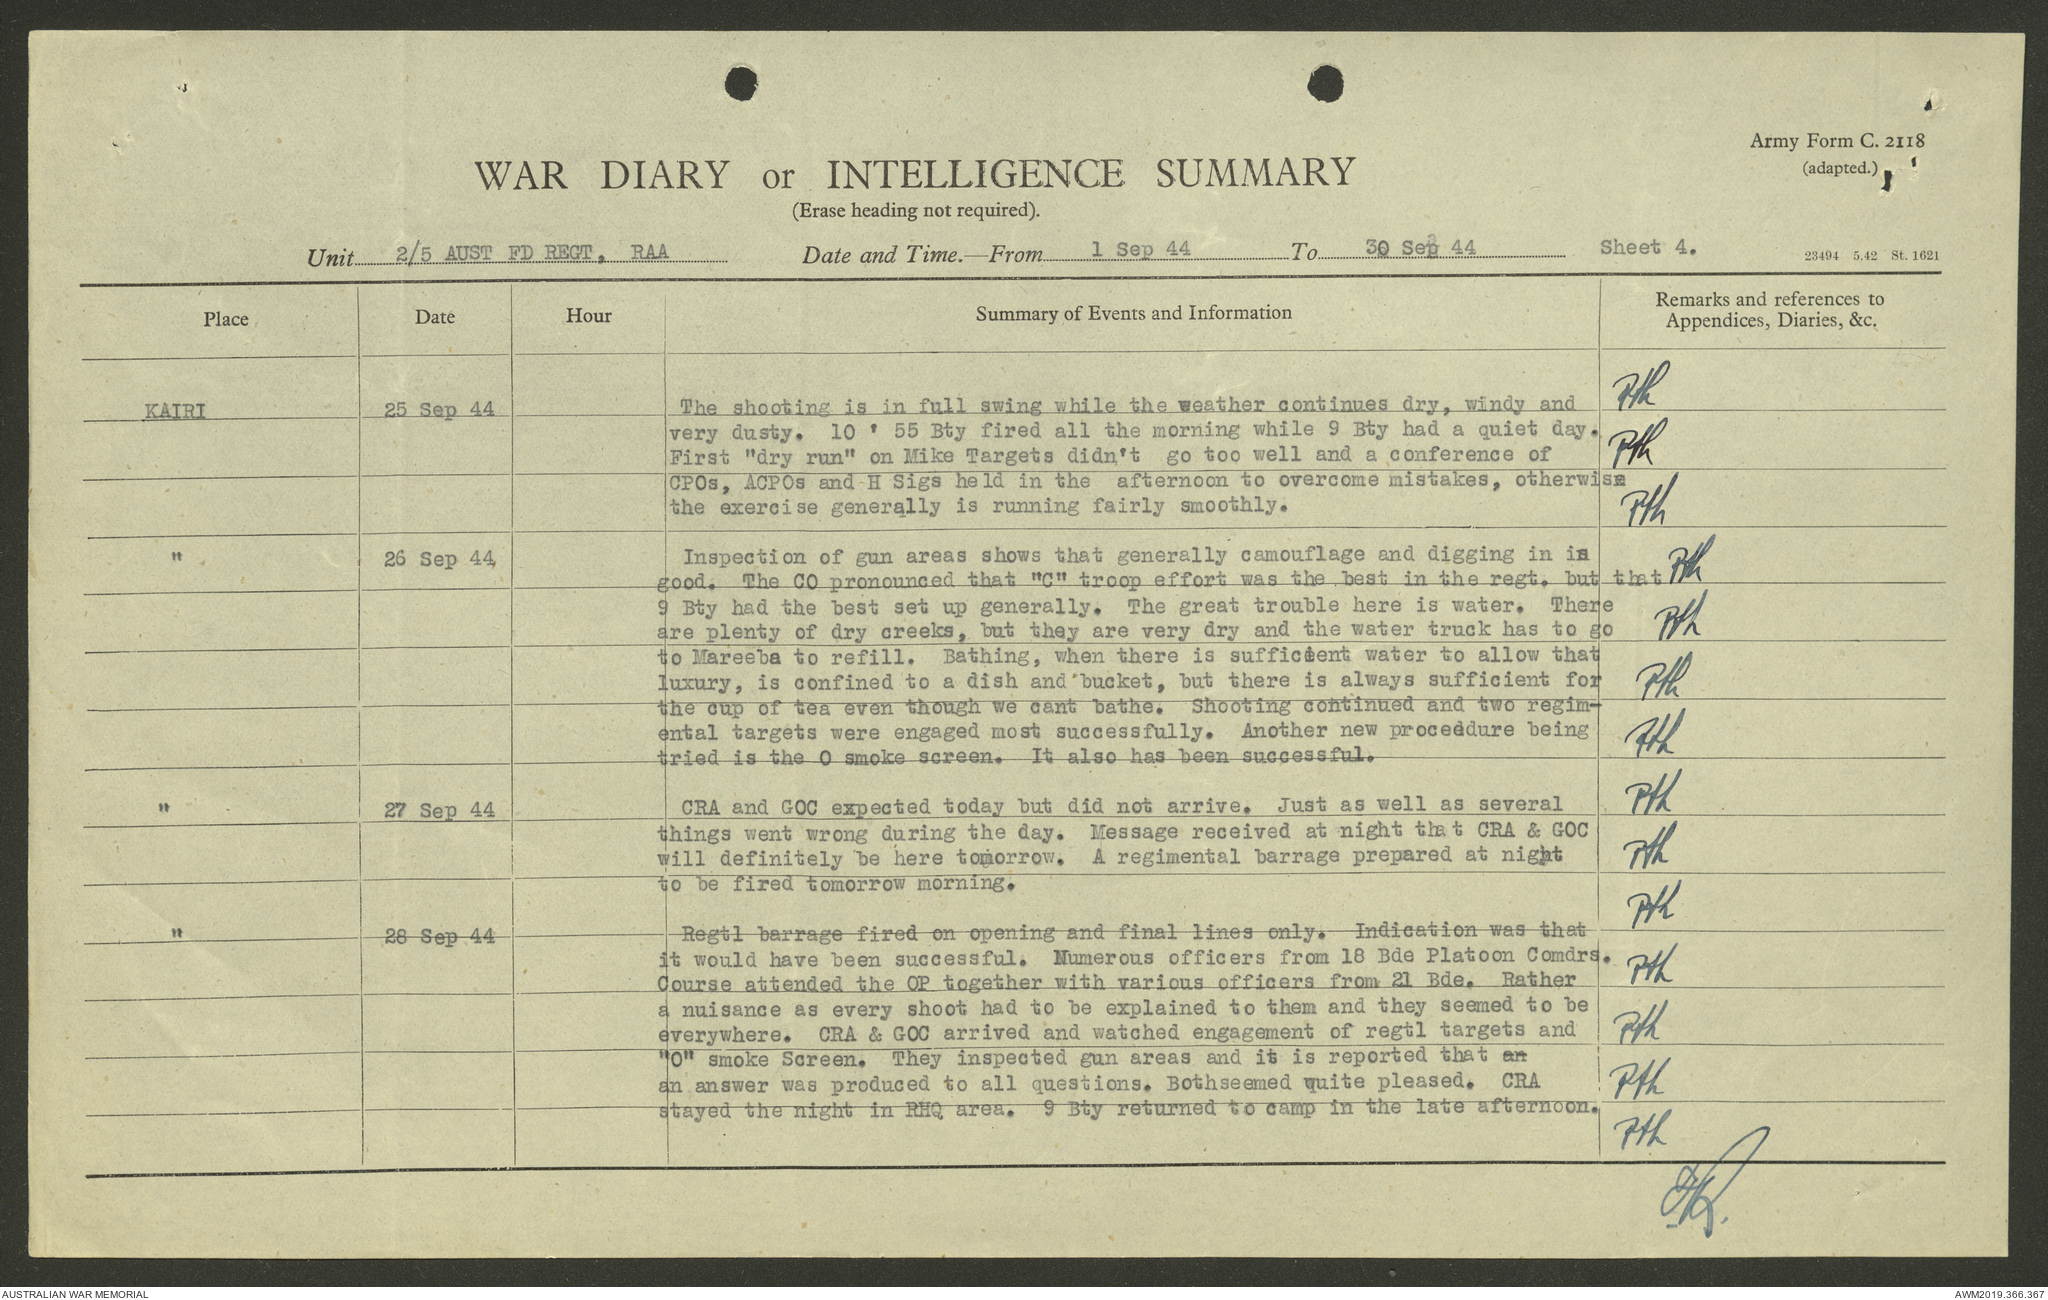 Army Form C. 2118
(adapted.)
WAR DIARY or INTELLIGENCE SUMMARY
(Erase heading not required).
Unit 2/5 AUST FD REGT, RAA Date and Time.—From 1 Sep 44 To 30 Sep 44 Sheet 4. 23494 5.42 St. 1621
Place Date Hour Summary of Events and Information Remarks and references to
Appendices, Diaries, &c.
KAIRI 25 Sep 44 The shooting is in full swing while the weather continues dry, windy and
very dusty. 10 ' 55 Bty fired all the morning while 9 Bty had a quiet day.
First "dry run" on Mike Targets didn't go too well and a conference of
CPOs, ACPOs and H Sigs held in the afternoon to overcome mistakes, otherwise
the exercise generally is running fairly smoothly.
" 26 Sep 44, Inspection of gun areas shows that generally camouflage and digging in is
good. The CO pronounced that "C" troop effort was the best in the regt. but that
9 Bty had the best set up generally. The great trouble here is water. There
are plenty of dry creeks, but they are very dry and the water truck has to go
to Mareeba to refill. Bathing, when there is sufficient water to allow that
luxury, is confined to a dish and bucket, but there is always sufficient for
the cup of tea even though we cant bathe. Shooting continued and two regim-
ental targets were engaged most successfully. Another new proceedure being
tried is the O smoke screen. It also has been successful.
" 27 Sep 44 CRA and GOC expected today but did not arrive. Just as well as several
things went wrong during the day. Message received at night that CRA & GOC
will definitely be here tomorrow. A regimental barrage prepared at night
to be fired tomorrow morning.
" 28 Sep 44 Regtl barrage fired on opening and final lines only. Indication was that
it would have been successful. Numerous officers from 18 Bde Platoon Comdrs.
Course attended the OP together with various officers from 21 Bde. Rather
a nuisance as every shoot had to be explained to them and they seemed to be
everywhere. CRA & GOC arrived and watched engagement of regtl targets and
"O" smoke Screen. They inspected gun areas and it is reported that an
an answer was produced to all questions. Bothseemed quite pleased. CRA
stayed the night in RHQ area. 9 Bty returned to camp in the late afternoon.
AUSTRALIAN WAR MEMORIAL
AWM2019.366.367